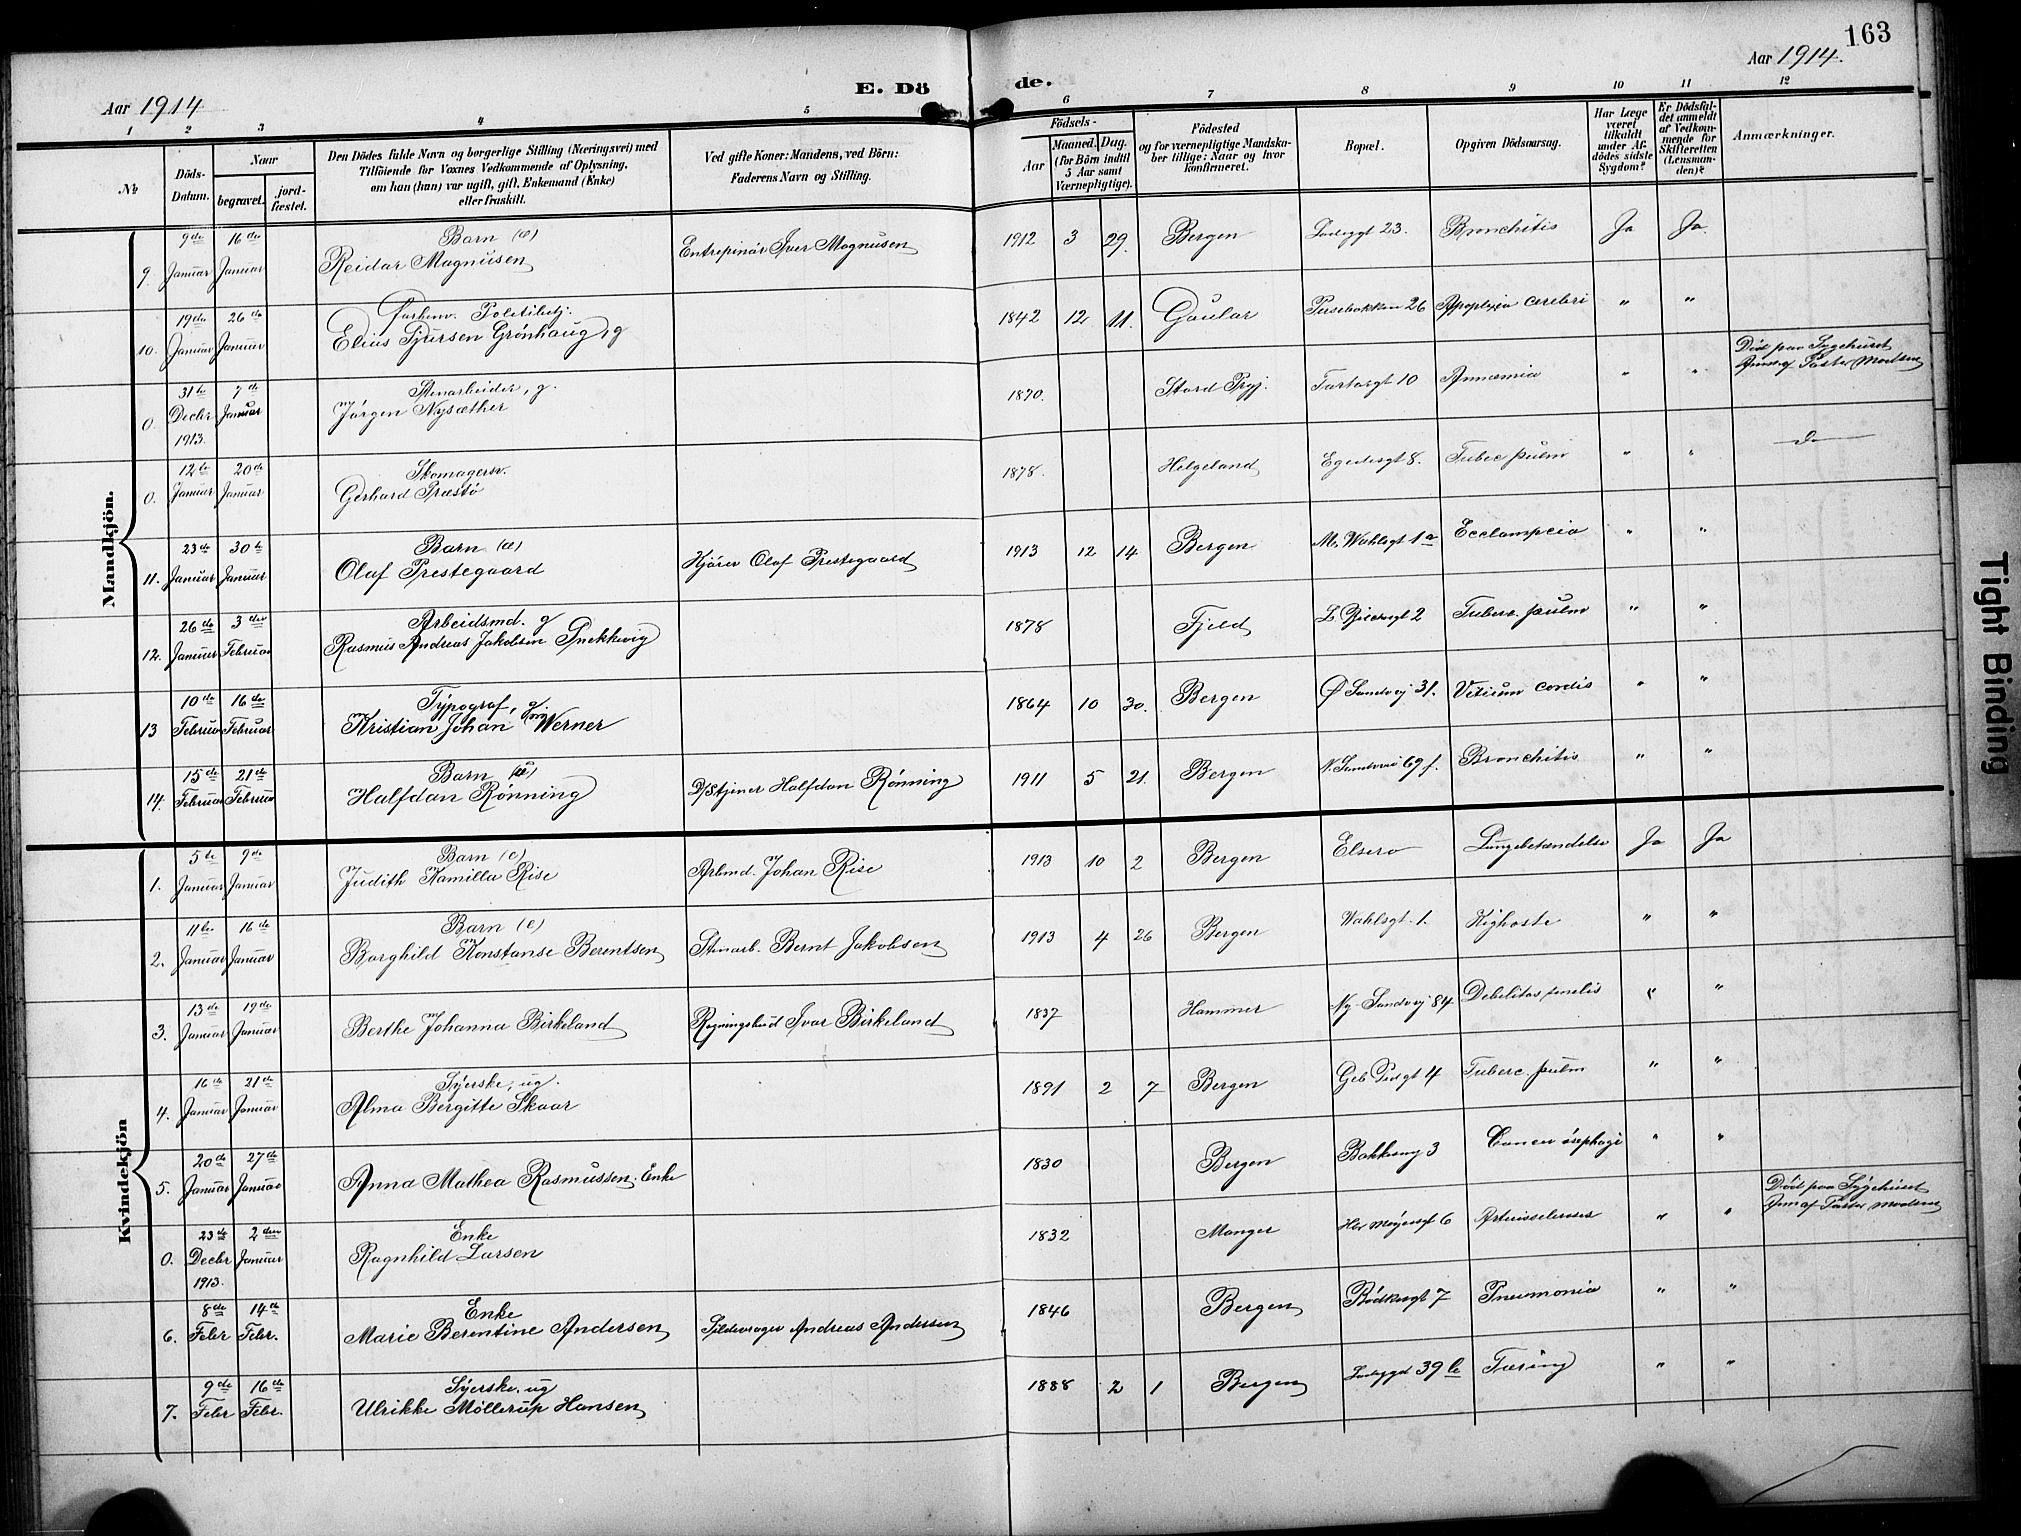 163
Aar 1914
E. Dö de.
Aar 1914.
1 2 3 4 5 6 7 8 9 10 11 12
No
Döds-Datum.
Naar
begravet.
jord-fæstet.
Den Dödes fulde Navn og borgerlige Stilling (Næringsvei) med
Tilföiende for Voxnes Vedkommende af Oplysning,
om han (hun) var ugift, gift, Enkemand (Enke)
eller fraskilt.
Ved gifte Koner: Mandens, ved Börn:
Faderens Navn og Stilling.
Födsels-
Aar
Maaned. Dag.
(for Börn indtil
5 Aar samt
Værnepligtige).
Födested
og for værnepligtige Mandska-
ber tillige: Naar og hvor
konfirmeret.
Bopæl.
Opgiven Dödsaarsag.
Har Læge
været
tilkaldt
under Af-
dödes sidste
Sygdom?
Er Dödsfal-
det anmeldt
af Vedkom-
mende for
Skifteretten
(Lensman-
den)?
Anmærkninger.
Mandkjön.
9. 9de Januar 16de Januar Barn (e)
Reidar Magnusen Entreprinör Iver Magnusen 1912 3 29. Bergen Ladeggt 23. Bronchitis Ja Ja.
10. 19de Januar 26de Januar Forhenv. Politibetj.
Elius Tjursen Grönhaug, g 1842 12 11. Gaular 26 Apoplexia cerebri " "
0. 31te Decbr 1913. 7de Januar Stenarbeider, g.
Jörgen Nysæther 1870. Stord Prgj. Tartargt 10 Annæmia " " Död paa Sygehuset
Anm af Pastor Madsen
0. 12te Januar 20de Januar Skomagersv.
Gerhard Præstö 1878. Helgeland Egedesgt 8. Tuberc pulm " " do
11. 23de Januar 30te Januar Barn (æ)
Olaf Prestegaard Kjörer Olaf Prestegaard 1913 12 14 Bergen M. Wahlsgt 1a Ecclampcia " "
12. 26de Januar 3die Februar Arbeidsmd. g
Rasmus Andreas Jakobsen Snekkevig 1878 Fjeld 2 Tuberc. pulm " "
13 10de Februar 16de Februar Typograf, g.
Kristian Johan Werner 1864 10 30. Bergen Ö Sandvej 31. Vitium cordis " "
14. 15de Februar 21de Februar Barn (æ)
Halfdan Rönning D/Stjener Halfdan Rönning 1911 5 21. Bergen N. Sandvei 69 f. Bronchitis " "
Kvindekjön
1. 5te Januar 9de Januar Barn (e)
Judith Kamilla Rise Arbmd. Johan Rise 1913 10 2 Bergen Elsero Lungebetændelse Ja Ja
2. 11te Januar 16de Januar Barn (e)
Borghild Konstanse Berentsen Stenarb. Bernt Jakobsen 1913 4 26 Bergen Wahlsgt. 1. Kighoste " "
3. 13de Januar 19de Januar Berthe Johanna Birkeland Regningsbud Ivar Birkeland 1837 Hammer Ny Sandvej 84 Debelitas senelis " "
4. 16de Januar 21de Januar Syerske, ug.
Alma Bergitte Skaar 1891 2 7 Bergen 4 Tuberc. pulm " "
5. 20de Januar 27de Januar Anna Mathea Rasmussen. Enke 1830 Bergen Bakkesmg 3 Cancer øsephagi " "
0. 23de Decbr 1913. 2den Januar Enke
Ragnhild Larsen 1832 Manger Hbr Meyersgt 6 Arterisseleroses " " Död paa Sygehuset
Anm af Pastor Madsen
6. 8de Febr 14de Febr. Enke
Marie Berentine Andersen Sildevrager Andreas Andersen 1846 Bergen Bödkergt 7 Pneumonia " "
7. 9de Febr 16de Febr. Syerske, ug
Ulrikke Möllerup Hansen 1888 2 1 Bergen Ladeggd 39 b Tæring " "
Tight Binding